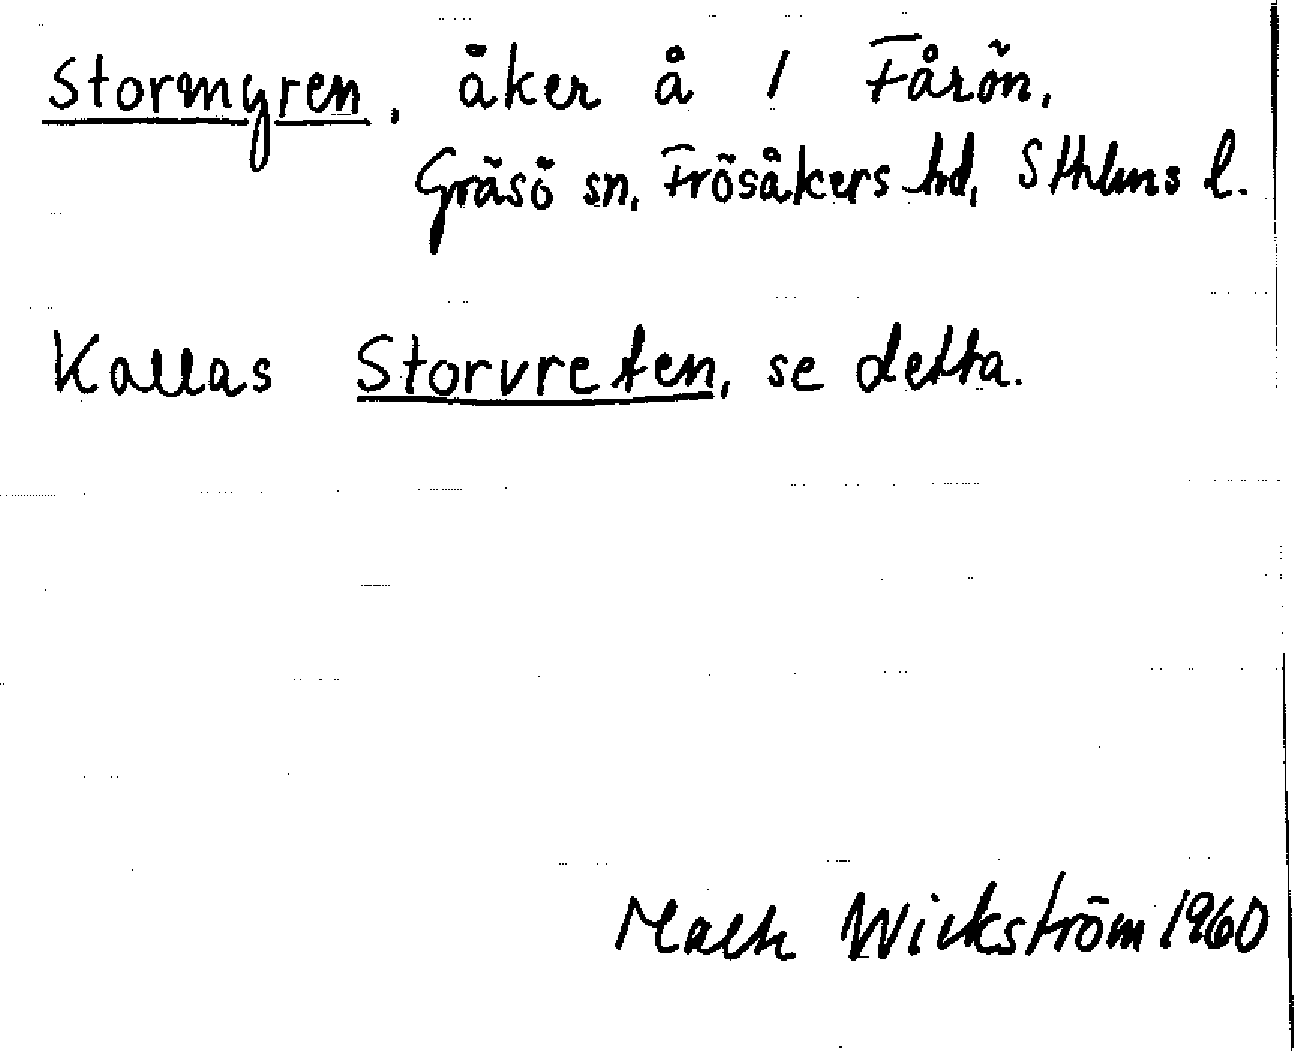 Stormyren, åker å 1 Fårön,
Gräsö sn, Frösåkers hd, Sthlms l.
Kallas Storvreten, se detta.
Wickström 1960